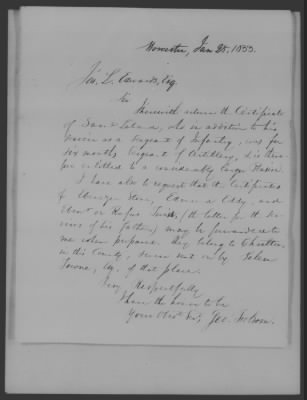 Worcester, Jan 28, 1833.
Jas. L. Edwards, Esq.
Sir
I herewith return the Certificate
of Saml Leland, who in addition to his
service as a Sergeant of Infantry, was for
six months Sergeant of Artillery, & is there-
fore entitled to a considerably larger
I have also to request that the Certificates
of Ebenezer
and
of Rufus (the latter for the ser-
vices of his father) may be forwarded to
me when prepared. They belong to
in this County, & were sent on by Salem
Towne, Esq. of that place.
Very Respectfully,
I have the honor to be
Your Obt Svt,